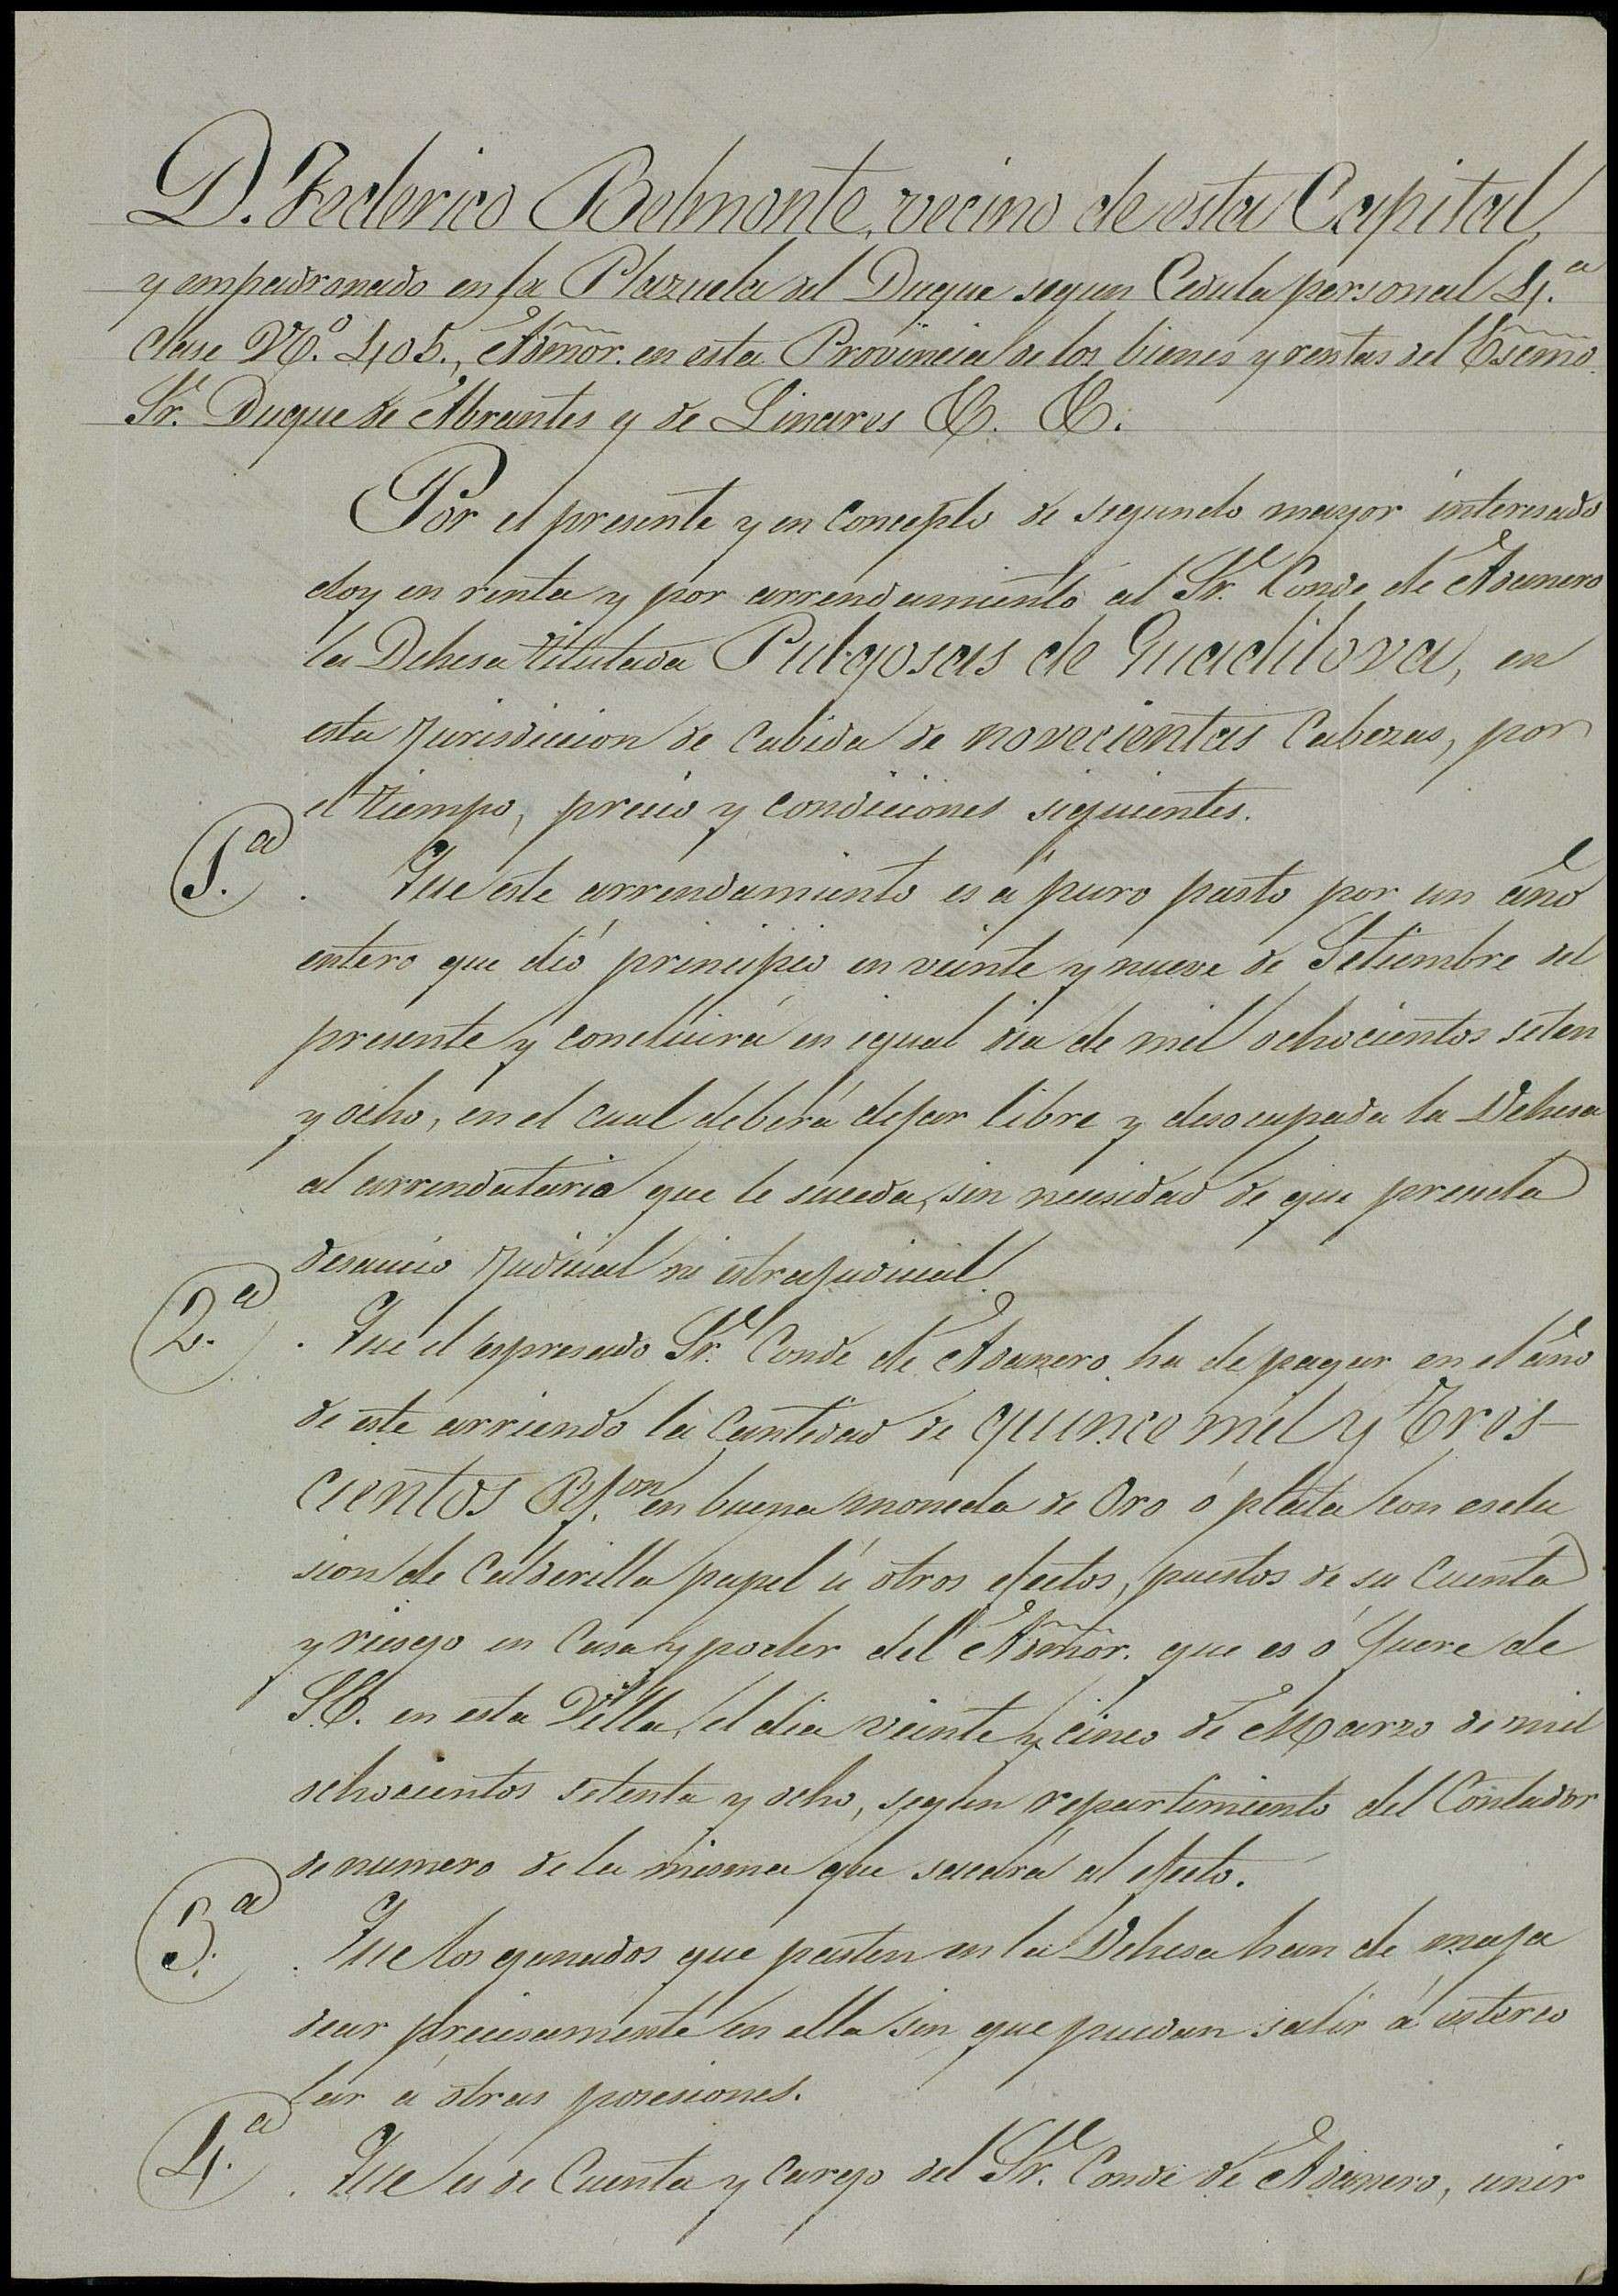 D. Federico Belmonte, vecino de esta Capital,
y empadronado en la Plazuela del Duque segun Cedula personal 4.ª
clase N.º 405., Admor. en esta Provincia de los bienes y rentas del Escmo.
Sr. Duque de Abrantes y de Linares &. &.
Por el presente y en concepto de segundo mayor interesado
doy en renta y por arrendamiento al Sr. Conde de Adanero
la Dehesa titulada Pulgosas de Guadilova, en
esta Jurisdiccion de Cabida de novecientas Cabezas, por
el tiempo, precio y condiciones siguientes.
1.ª . Que este arrendamiento es á puro pasto por un año
entero que dió principio en veinte y nueve de Setiembre del
presente y concluirá en igual dia de mil ochocientos seten
y ocho, en el cual deberá dejar libre y desocupada la Dehesa
al arrendatario que le suceda, sin necesidad de que preceda
desaucio Judicial ni estrajudicial.
2.ª . Que el espresado Sr. Conde de Adanero ha de pagar en el año
de este arriendo la Cantidad de quince mil y tres-
cientos en buena moneda de Oro ó plata con esclu
sion de Calderilla papel ú otros efectos, puestos de su Cuenta
y riesgo en Casa y poder del Admor. que es ó fuere de
S.E. en esta Villa, el dia veinte y cinco de Marzo de mil
ochocientos setenta y ocho, segun repartimiento del Contador
de numero de la misma que sacará al efecto.
3.ª . Que los ganados que pasten en la Dehesa han de maja
dear precisamente en ella sin que puedan salir á esterco
lar á otras posesiones.
4.ª . Que es de Cuenta y cargo del Sr. Conde de Adanero, unir